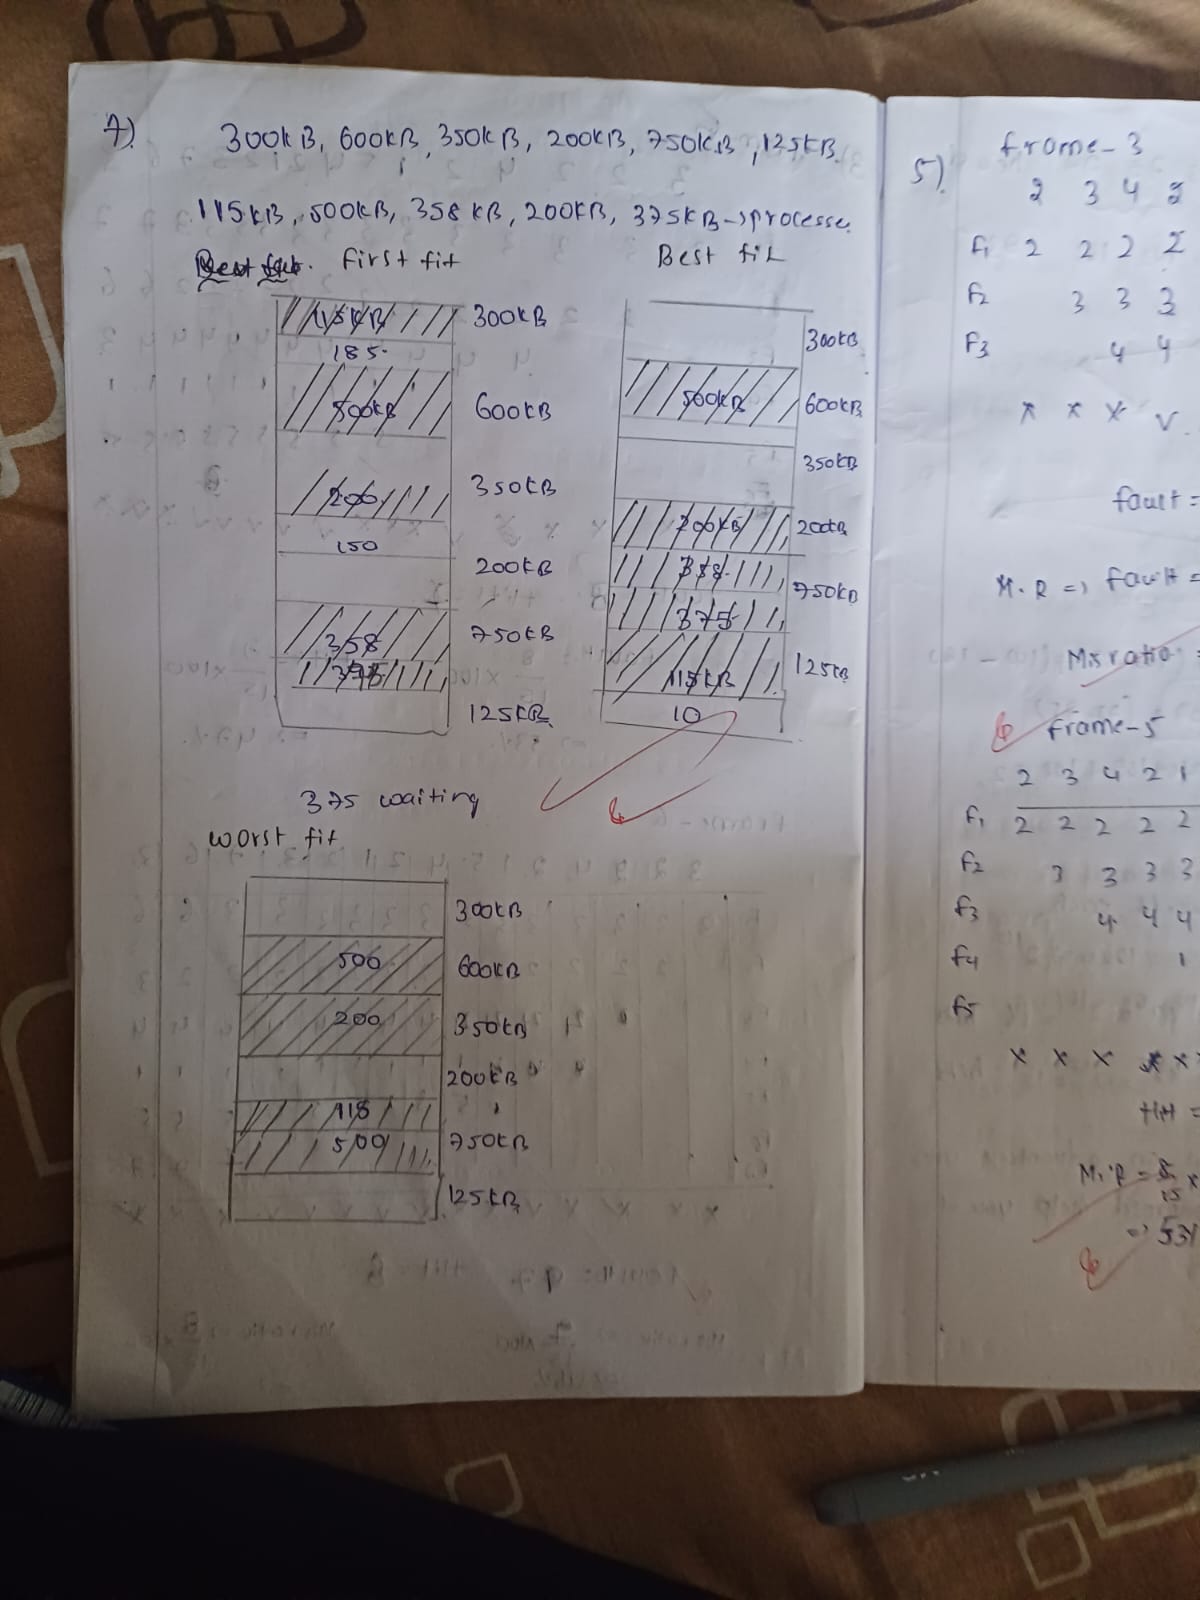 7).
300KB, 600KB, 350KB, 200KB, 750KB, 125KB
115KB, 500KB, 358 KB, 200KB, 375KB → processe.
First fit
115KB 300KB
185.
500KB 600KB
200 350KB
150
200KB
358 750KB
375
125KB
375 waiting
Best fit
300KB
500KB 600KB
350KB
200KB 200KB
358 750KB
375
115KB 125KB
10
worst fit
300KB
500 600KB
200 350KB
200KB
115
500 750KB
125KB
5).
frame-3
2 3 4 2
F1 2 2 2 2
F2 3 3 3
F3 4 4
x x x v
fault =
M.R => fault =
Mis ratio =
6 frame-5
2 3 4 2 1
F1 2 2 2 2 2
F2 3 3 3 3
F3 4 4 4
F4 1
F5
x x x
Hit =
M.R = 8/15 x
=> 53%